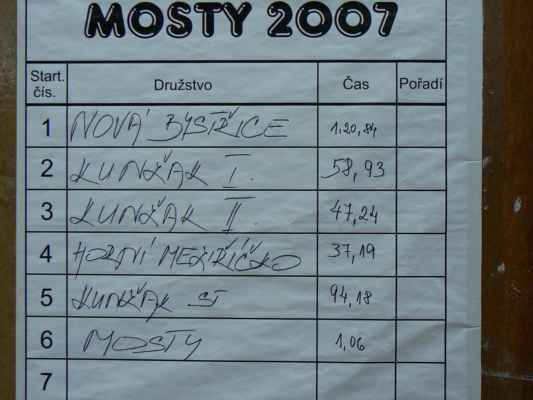 MOSTY 2007
Start. čís. Družstvo Čas Pořadí
1 NOVÁ BYSTŘICE 1,20,84
2 KUNŽAK I. 58,93
3 KUNŽAK II. 47,24
4 HORNÍ MEZIŘÍČKO 37,19
5 KUNŽAK ST 94,18
6 MOSTY 1,06
7